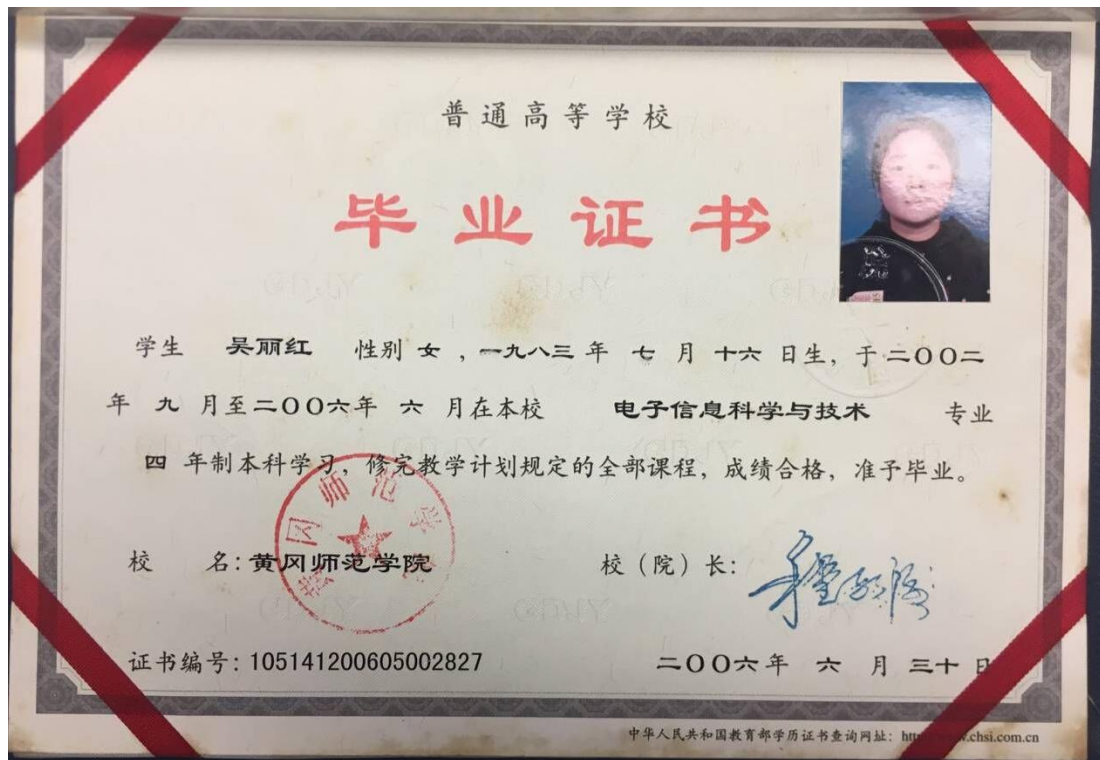 普通高等学校
毕业证书
学生 吴丽红 性别 女 ，一九八三 年 七 月 十六 日生，于二〇〇二
年 九 月至二〇〇六年 六 月在本校 电子信息科学与技术 专业
四 年制本科学习，修完教学计划规定的全部课程，成绩合格，准予毕业。
校 名：黄冈师范学院 校（院）长：
黄冈师范学院
证书编号：105141200605002827 二〇〇六年 六 月 三十 日
中华人民共和国教育部学历证书查询网址： http .chsi.com.cn